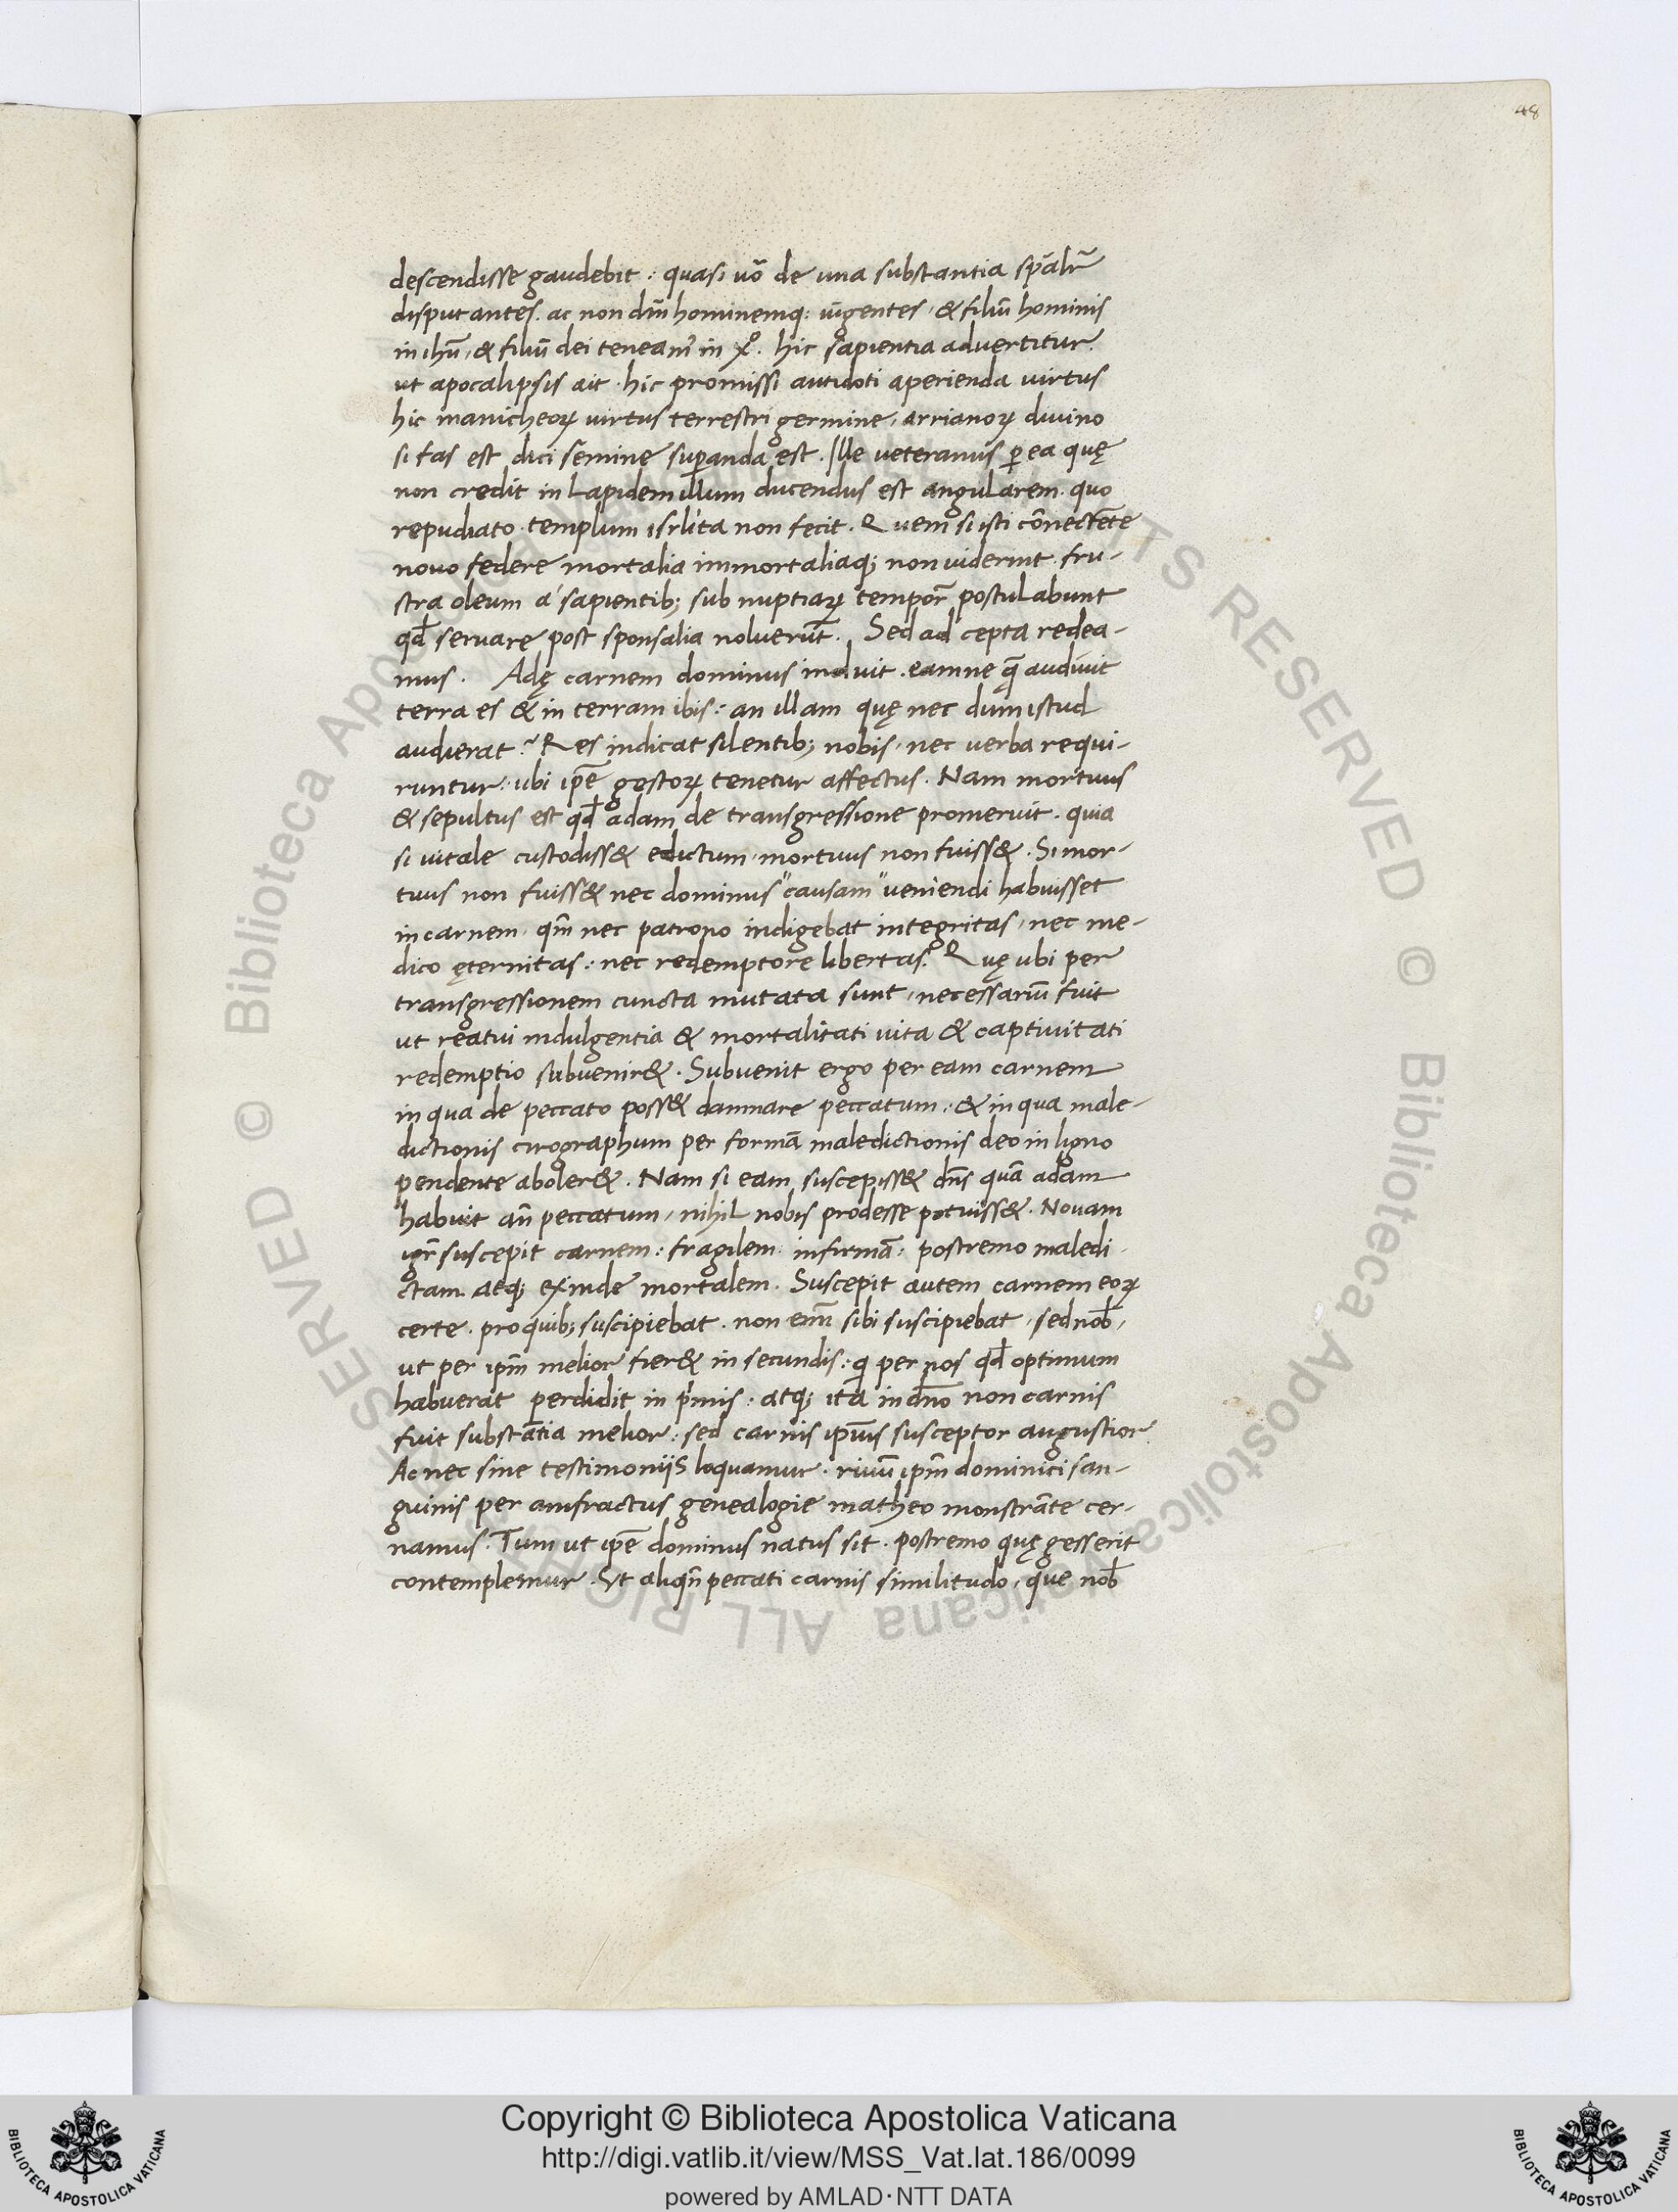 48
descendisse gaudebit : quasi uo᷃ de una substantia sp̄alr̄
disputantes. ac non dm̄ hominemq: iūgentes, & filiū hominis
in ihū, & filiū dei teneam᷒ in xp̄o. hic sapientia advertitur
ut apocalipsis ait. hic promissi antidoti aperienda virtus
hic manicheoꝝ virtus terrestri germine, arrianoꝝ divino
si fas est dici semine suꝑanda est. Ille veteranus ꝑ ea quę
non credit in Lapidem illum ducendus est anguLarem. quo
repudiato. templum isrlita non fecit. Quem si isti cōnectēte
novo federe mortalia immortaliaq; non viderint. fru-
stra oleum a sapientib; sub nuptiaꝝ tempor̄ postuLabunt
qd̄ servare post sponsalia noluerūt. Sed ad cepta redea-
mus. Adę carnem dominus induit. eamne quā audivit
terra es & in terram ibis: an illam quę nec dum istud
audierat? Res indicat silentib; nobis, nec verba requi-
runtur. ubi ip̄e gestoꝝ tenetur affectus. Nam mortuus
& sepultus est qd̄ adam de transgressione promeruit. quia
si vitale custodiss& edictum, mortuus non fuiss&. Si mor-
tuus non fuiss& nec dominus "causam" veniendi habuisset
in carnem, qm̄ nec patrono indigebat integritas, nec me-
dico ęternitas: nec redemptore libertas. Quę ubi per
transgressionem cuncta mutata sunt, necessariū fuit
ut reatui indulgentia & mortalitati vita & captivitati
redemptio subvenir&. Subvenit ergo per eam carnem
in qua de peccato poss& damnare peccatum: & in qua male-
dictionis cirographum per formā maledictionis deo in ligno
pendente aboler&. Nam si eam suscepiss& dn̄s quā adam
habuit an̄ peccatum, nihiL nobis prodesse potuiss&. Novam
igr̄ suscepit carnem: fragilem: infirmā: postremo maledi-
ctam. atq; exinde mortalem. Suscepit autem carnem eoꝝ
certe. pro quib; suscipiebat. non enī sibi suscipiebat, sed nob̄,
ut per ip̄m melior fier& in secundis: q per nos qd̄ optimum
habuerat perdidit in pͥmis: atq; ita in dn̄o non carnis
fuit substātia melior: sed carnis ipīus susceptor augustior
Ac nec sine testimoniis loquamur. rivū ip̄m dominici san-
guinis per amfractus genealogie matheo monstrāte cer-
namus. Tum ut ip̄e dominus natus sit. postremo quę gesserit
contemplemur. Et aliqn̄ peccati carnis similitudo, que nob̄
Copyright © Biblioteca Apostolica Vaticana
http://digi.vatlib.it/view/MSS_Vat.lat.186/0099
powered by AMLAD·NTT DATA
BIBLIOTECA APOSTOLICA VATICANA
BIBLIOTECA APOSTOLICA VATICANA
© Biblioteca Apostolica Vaticana ALL RIGHTS RESERVED